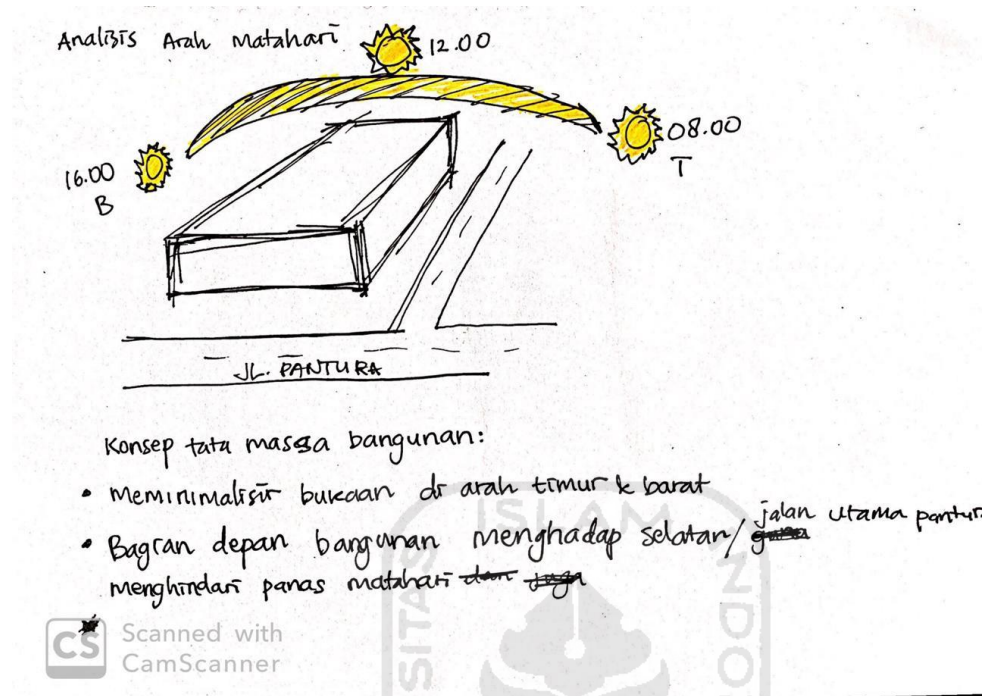 Analisis Arah Matahari
12.00
08.00
T
16.00
B
JL. PANTURA
Konsep tata massa bangunan:
• Meminimalisir bukaan di arah timur & barat
• Bagian depan bangunan menghadap selatan/ jalan utama pantura
menghindari panas matahari dan juga
CS Scanned with
CamScanner
ISLAM
SITAS
NDO